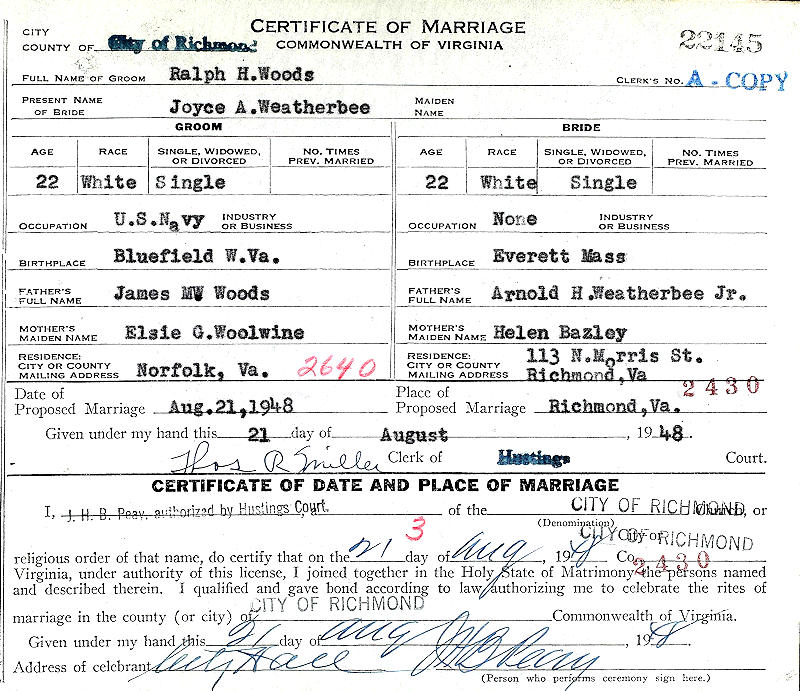 CITY
COUNTY OF City of Richmond
CERTIFICATE OF MARRIAGE
COMMONWEALTH OF VIRGINIA
22145
FULL NAME OF GROOM Ralph H.Woods
CLERK'S NO. A - COPY
PRESENT NAME OF BRIDE Joyce A.Weatherbee MAIDEN NAME
GROOM BRIDE
AGE RACE SINGLE, WIDOWED, OR DIVORCED NO. TIMES PREV. MARRIED AGE RACE SINGLE, WIDOWED, OR DIVORCED NO. TIMES PREV. MARRIED
22 White Single 22 White Single
OCCUPATION U.S.Navy INDUSTRY OR BUSINESS OCCUPATION None INDUSTRY OR BUSINESS
BIRTHPLACE Bluefield W.Va. BIRTHPLACE Everett Mass
FATHER'S FULL NAME James MW Woods FATHER'S FULL NAME Arnold H.Weatherbee Jr.
MOTHER'S MAIDEN NAME Elsie G.Woolwine MOTHER'S MAIDEN NAME Helen Bazley
RESIDENCE: CITY OR COUNTY MAILING ADDRESS Norfolk, Va. 2640 RESIDENCE: CITY OR COUNTY MAILING ADDRESS 113 N.Morris St. Richmond,Va
2430
Date of Proposed Marriage Aug.21,1948 Place of Proposed Marriage Richmond,Va.
Given under my hand this 21 day of August , 1948
Thos R Miller Clerk of Hustings Court.
CERTIFICATE OF DATE AND PLACE OF MARRIAGE
I, J. H. B. Peay, authorized by Hustings Court. of the CITY OF RICHMOND Church, or
(Denomination)
3 CITY OF RICHMOND
religious order of that name, do certify that on the 21 day of Aug , 1948 Co
2430
Virginia, under authority of this license, I joined together in the Holy State of Matrimony the persons named
and described therein. I qualified and gave bond according to law authorizing me to celebrate the rites of
CITY OF RICHMOND
marriage in the county (or city) of Commonwealth of Virginia.
Given under my hand this 21 day of Aug , 1948
Address of celebrant City Hall JHB Peay
(Person who performs ceremony sign here.)